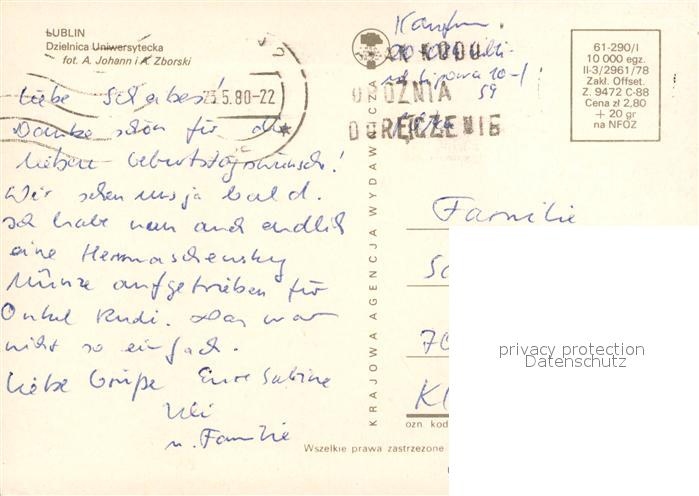 LUBLIN
Dzielnica Uniwersytecka
fot. A. Johann i A. Zborski
23.5.80-22
BRAK KODU
OPÓŹNIA
DORĘCZENIE
61-290/I
10 000 egz.
II-3/2961/78
Zakl. Offset.
Z. 9472 C-88
Cena zł 2,80
+ 20 gr
na NFOZ
Liebe
Danke schön für die
lieben Geburtstagswünsche!
Wir sehen uns ja bald.
Ich habe nun auch endlich
eine
Münze aufgetrieben für
Onkel Rudi. Das war
nicht so einfach.
Liebe Grüße Eure Sabine
Uli
u. Familie
KRAJOWA AGENCJA WYDAWNICZA
Familie
70
Kl
privacy protection
Datenschutz
ozn. kod
Wszelkie prawa zastrzeżone